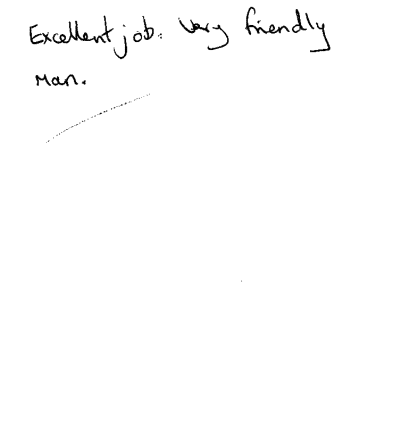 Excellent job. Very friendly
man.